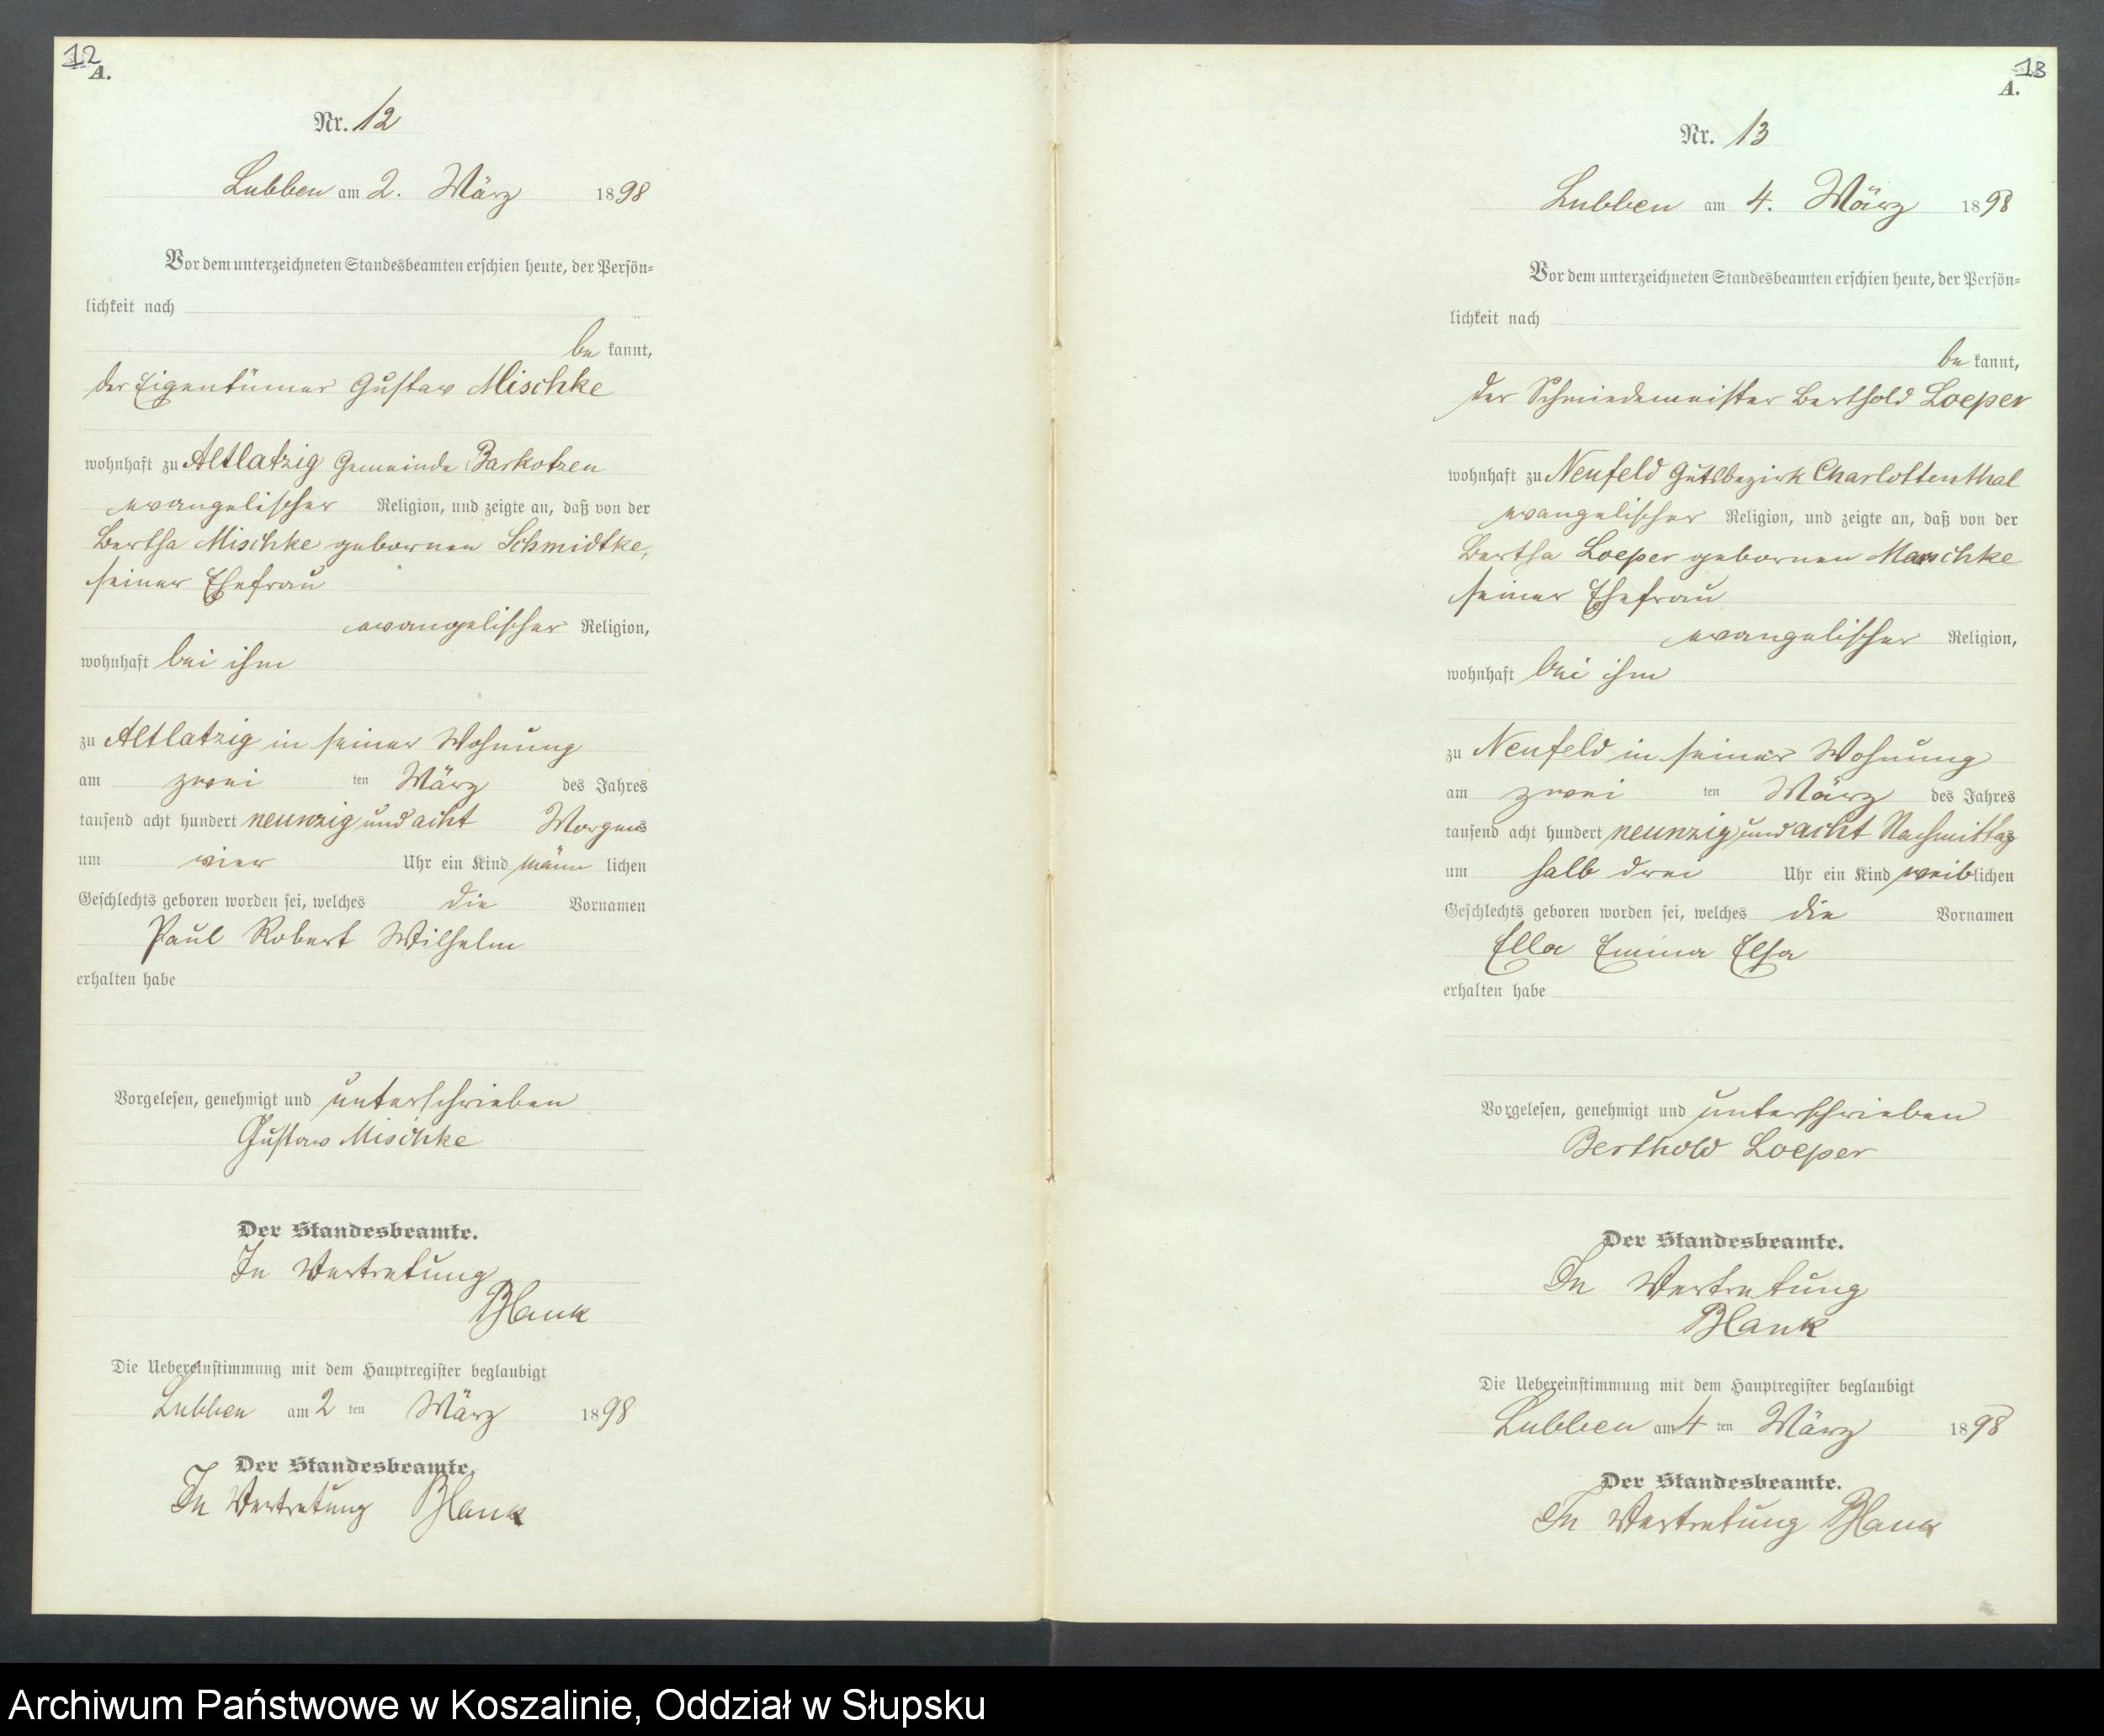 12
A.
Nr. 12
Lubben am 2. März 1898
Vor dem unterzeichneten Standesbeamten erschien heute, der Persön=
lichkeit nach
be kannt,
der Eigentümer Gustav Mischke
wohnhaft zu Altlatzig Gemeinde Barkotzen
evangelischer Religion, und zeigte an, daß von der
Bertha Mischke gebornen Schmidtke,
seiner Ehefrau
evangelischer Religion,
wohnhaft bei ihm
zu Altlatzig in seiner Wohnung
am zwei ten März des Jahres
tausend acht hundert neunzig und acht Morgens
um vier Uhr ein Kind männ lichen
Geschlechts geboren worden sei, welches die Vornamen
Paul Robert Wilhelm
erhalten habe
Vorgelesen, genehmigt und unterschrieben
Gustav Mischke
Der Standesbeamte.
In Vertretung
Blank
Die Uebereinstimmung mit dem Hauptregister beglaubigt
Lubben am 2 ten März 1898
Der Standesbeamte.
In Vertretung Blank
13
A.
Nr. 13
Lubben am 4. März 1898
Vor dem unterzeichneten Standesbeamten erschien heute, der Persön=
lichkeit nach
be kannt,
der Schmiedemeister Berthold Loeper
wohnhaft zu Neufeld Gutsbezirk Charlottenthal
evangelischer Religion, und zeigte an, daß von der
Bertha Loeper gebornen Maschke
seiner Ehefrau
evangelischer Religion,
wohnhaft bei ihm
zu Neufeld in seiner Wohnung
am zwei ten März des Jahres
tausend acht hundert neunzig und acht Nachmittag
um halb drei Uhr ein Kind weiblichen
Geschlechts geboren worden sei, welches die Vornamen
Ella Emma Elsa
erhalten habe
Vorgelesen, genehmigt und unterschrieben
Berthold Loeper
Der Standesbeamte.
In Vertretung
Blank
Die Uebereinstimmung mit dem Hauptregister beglaubigt
Lubben am 4 ten März 1898
Der Standesbeamte.
In Vertretung Blank
Archiwum Państwowe w Koszalinie, Oddział w Słupsku